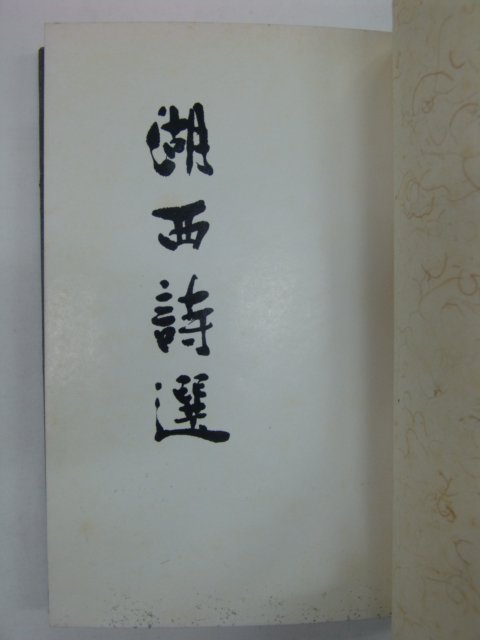 湖西詩選